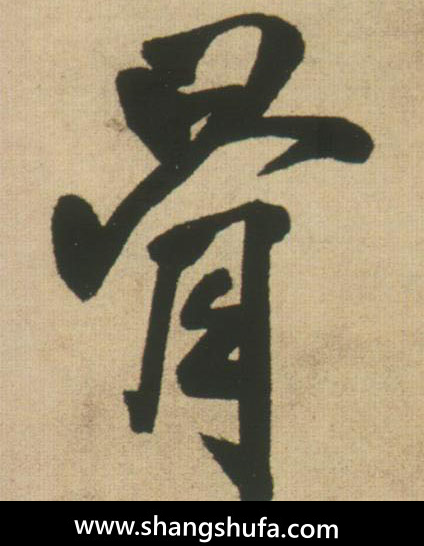 骨
www.shangshufa.com